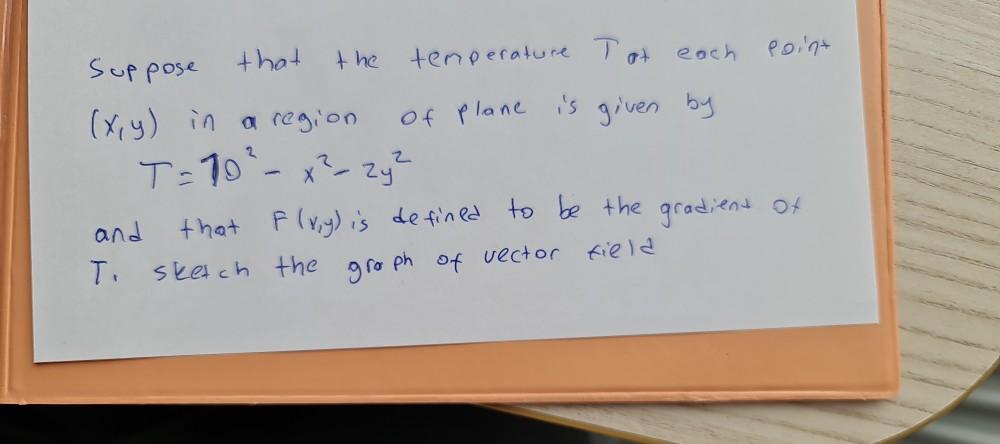 Suppose that the temperature T at each point
(x,y) in a region of plane is given by
T = 10² - x² - 2y²
and that F(x,y) is defined to be the gradient of
T. sketch the graph of vector field